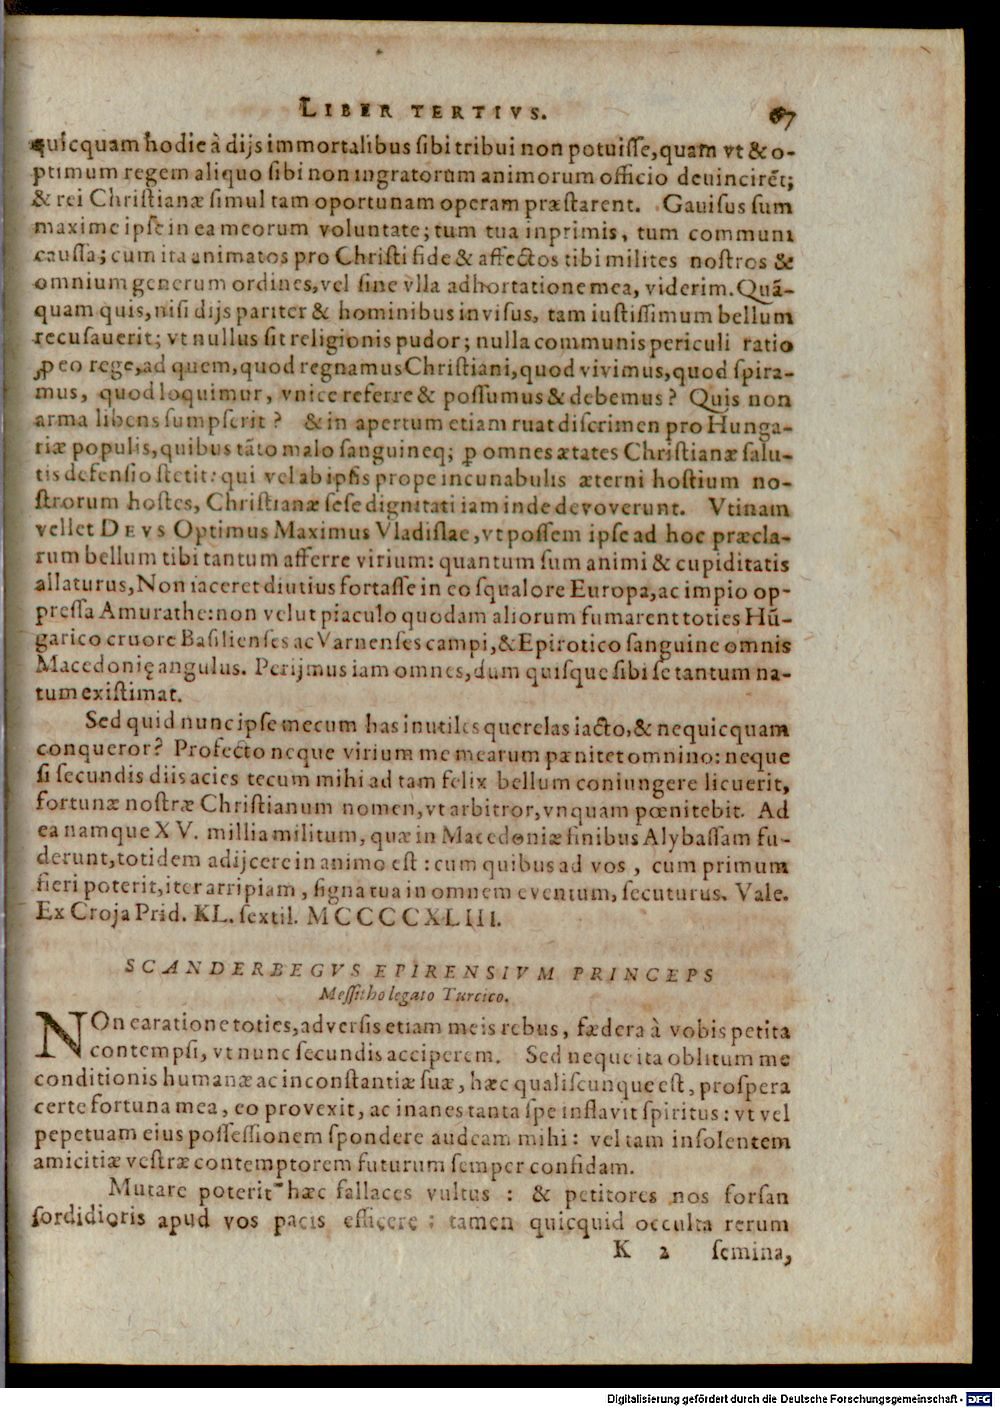 LIBER TERTIVS. 67
quicquam hodie à dijs immortalibus sibi tribui non potuisse, quam vt & o-
ptimum regem aliquo sibi non ingratorum animorum officio deuincirēt;
& rei Christianæ simul tam oportunam operam præstarent. Gauisus sum
maxime ipse in ea meorum voluntate; tum tua inprimis, tum communi
caussa; cum ita animatos pro Christi fide & affectos tibi milites nostros &
omnium generum ordines, vel sine vlla adhortatione mea, viderim. Quā-
quam quis, nisi dijs pariter & hominibus invisus, tam iustissimum bellum
recusauerit; vt nullus sit religionis pudor; nulla communis periculi ratio
ꝓ eo rege, ad quem, quod regnamus Christiani, quod vivimus, quod spira-
mus, quod loquimur, vnice referre & possumus & debemus? Quis non
arma libens sumpserit? & in apertum etiam ruat discrimen pro Hunga-
riæ populis, quibus tāto malo sanguineq; ꝓ omnes ætates Christianæ salu-
tis defensio stetit: qui vel ab ipsis prope incunabulis æterni hostium no-
strorum hostes, Christianæ sese dignitati iam inde devoverunt. Vtinam
vellet DEVS Optimus Maximus Vladislae, vt possem ipse ad hoc præcla-
rum bellum tibi tantum afferre virium: quantum sum animi & cupiditatis
allaturus, Non iaceret diutius fortasse in eo squalore Europa, ac impio op-
pressa Amurathe: non velut piaculo quodam aliorum fumarent toties Hū-
garico cruore Basilienses ac Varnenses campi, & Epirotico sanguine omnis
Macedonię angulus. Perijmus iam omnes, dum quisque sibi se tantum na-
tum existimat.
Sed quid nunc ipse mecum has inutiles querelas iacto, & nequicquam
conqueror? Profecto neque virium me mearum pænitet omnino: neque
si secundis diis acies tecum mihi ad tam felix bellum coniungere licuerit,
fortunæ nostræ Christianum nomen, vt arbitror, vnquam pœnitebit. Ad
ea namque XV. millia militum, quæ in Macedoniæ finibus Alybassam fu-
derunt, totidem adijcere in animo est: cum quibus ad vos, cum primum
fieri poterit, iter arripiam, signa tua in omnem eventum, secuturus. Vale.
Ex Croja Prid. KL. sextil. MCCCCXLIII.
SCANDERBEGVS EPIRENSIVM PRINCEPS
Messitho legato Turcico.
NOn ea ratione toties, adversis etiam meis rebus, fædera à vobis petita
contempsi, vt nunc secundis acciperem. Sed neque ita oblitum me
conditionis humanæ ac inconstantiæ suæ, hæc qualiscunque est, prospera
certe fortuna mea, eo provexit, ac inanes tanta spe inflavit spiritus: vt vel
pepetuam eius possessionem spondere audeam mihi: vel tam insolentem
amicitiæ vestræ contemptorem futurum semper confidam.
Mutare poterit hæc fallaces vultus: & petitores nos forsan
sordidioris apud vos pacis efficere: tamen quicquid occulta rerum
K 2 semina,
Digitalisierung gefördert durch die Deutsche Forschungsgemeinschaft - DFG